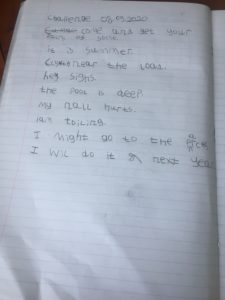 Challenge 08.09.2020
come and get your
it is summer.
near the road.
hey signs.
the pool is deep.
my nail hurts.
toiling.
I might go to the
I wil do it next year